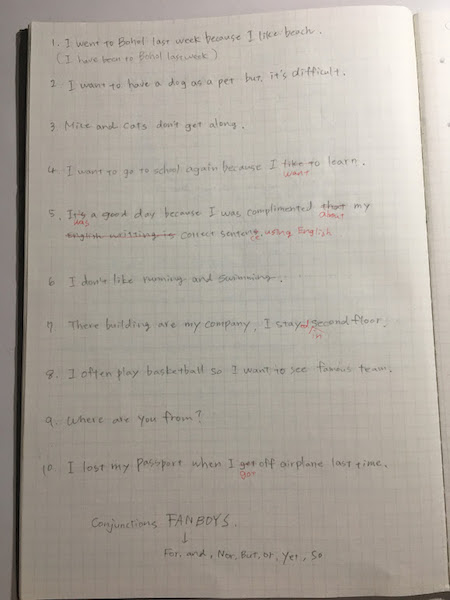 1. I went to Bohol last week because I like beach.
(I have been to Bohol last week)
2. I want to have a dog as a pet but, it's difficult.
3. Mice and cats don't get along.
4. I want to go to school again because I like to learn.
want
5. It's a good day because I was complimented that my
was about
English writting is correct sentence using English
6. I don't like running and swimming.
7. There building are my company, I stay second floor.
n
8. I often play basketball so I want to see famous team.
9. Where are you from?
10. I lost my passport when I get off airplane last time.
got
Conjunctions FANBOYS.
↓
For, and, Nor, But, Or, Yet, So